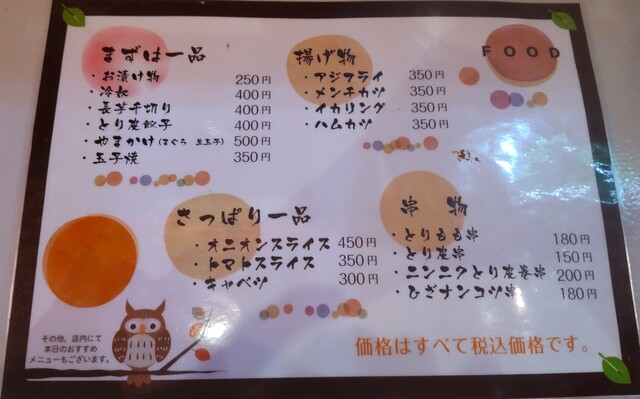 FOOD
まずは一品
・お漬け物 250円
・冷奴 400円
・長芋千切り 400円
・とり皮餃子 400円
・やまかけ(まぐろ 生玉子) 500円
・玉子焼 350円
揚げ物
・アジフライ 350円
・メンチカツ 350円
・イカリング 350円
・ハムカツ 350円
さっぱり一品
・オニオンスライス 450円
・トマトスライス 350円
・キャベツ 300円
串物
・とりもも串 180円
・とり皮串 150円
・ニンニクとり皮巻串 200円
・ひざナンコツ串 180円
その他、店内にて
本日のおすすめ
メニューもございます。
価格はすべて税込価格です。